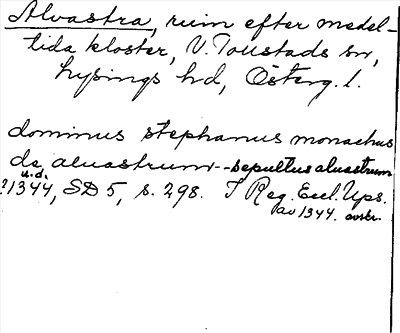 Alvastra, ruin efter medel-
tida kloster, V. Tollstads sn,
Lysings hd, Österg. l.
dominus stephanus monachus
de aluastrum -- sepultus aluastrum
u.d.
?1344, SD 5, s. 298. I Reg. Eccl. Ups.
av 1344. avskr.